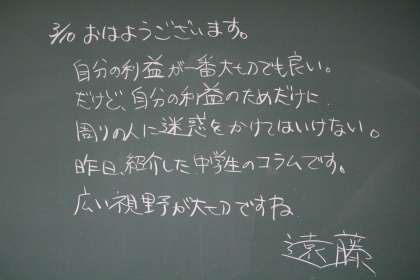 3/10 おはようございます。
自分の利益が一番大切でも良い。
だけど、自分の利益のためだけに
周りの人に迷惑をかけてはいけない。
昨日、紹介した中学生のコラムです。
広い視野が大切ですね
遠藤